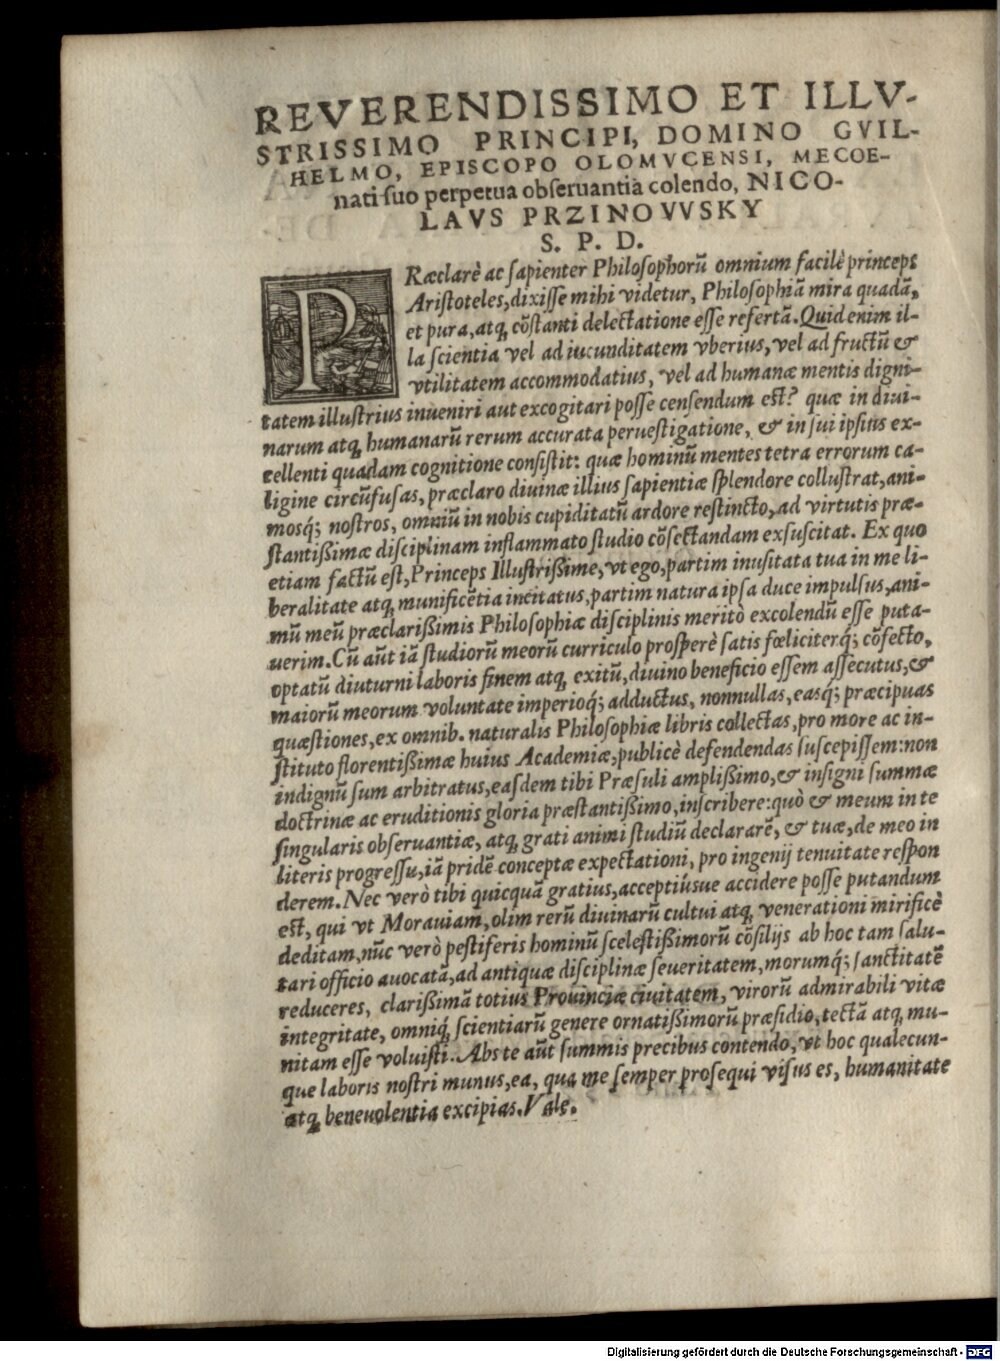 REVERENDISSIMO ET ILLV-
STRISSIMO PRINCIPI, DOMINO GVIL-
HELMO, EPISCOPO OLOMVCENSI, MECOE-
nati suo perpetua obseruantia colendo, NICO-
LAVS PRZINOVVSKY
S. P. D.
PRæclarè ac sapienter Philosophorũ omnium facilè princeps
Aristoteles, dixisse mihi videtur, Philosophiã mira quadã,
et pura, atq; cõstanti delectatione esse refertã. Quid enim il-
la scientia vel ad iucunditatem vberius, vel ad fructũ &
vtilitatem accommodatius, vel ad humanæ mentis digni-
tatem illustrius inueniri aut excogitari posse censendum est? quæ in diui-
narum atq; humanarũ rerum accurata peruestigatione, & in sui ipsius ex-
cellenti quadam cognitione consistit: quæ hominũ mentes tetra errorum ca-
ligine circũfusas, præclaro diuinæ illius sapientiæ splendore collustrat, ani-
mosq́; nostros, omniũ in nobis cupiditatũ ardore restincto, ad virtutis præ-
stantißimæ disciplinam inflammato studio cõsectandam exsuscitat. Ex quo
etiam factũ est, Princeps Illustrißime, vt ego, partim inusitata tua in me li-
beralitate atq; munificẽtia incitatus, partim natura ipsa duce impulsus, ani-
mũ meũ præclarißimis Philosophiæ disciplinis meritò excolendũ esse puta-
uerim. Cũ aũt iã studiorũ meorũ curriculo prosperè satis fœliciterq́; cõfecto,
optatũ diuturni laboris finem atq; exitũ, diuino beneficio essem assecutus, &
maiorũ meorum voluntate imperioq́; adductus, nonnullas, easq́; præcipuas
quæstiones, ex omnib. naturalis Philosophiæ libris collectas, pro more ac in-
stituto florentißimæ huius Academiæ, publicè defendendas suscepissem: non
indignũ sum arbitratus, easdem tibi Præsuli amplißimo, & insigni summæ
doctrinæ ac eruditionis gloria præstantißimo, inscribere: quò & meum in te
singularis obseruantiæ, atq; grati animi studiũ declararẽ, & tuæ, de meo in
literis progressu, iã pridẽ conceptæ expectationi, pro ingenij tenuitate respon
derem. Nec verò tibi quicquã gratius, acceptiúsue accidere posse putandum
est, qui vt Morauiam, olim rerũ diuinarũ cultui atq; venerationi mirificè
deditam, nũc verò pestiferis hominũ scelestißimorũ cõsilijs ab hoc tam salu-
tari officio auocatã, ad antiquæ disciplinæ seueritatem, morumq́; sanctitatẽ
reduceres, clarißimã totius Prouinciæ ciuitatem, virorũ admirabili vitæ
integritate, omniq́; scientiarũ genere ornatißimorũ præsidio, tectã atq; mu-
nitam esse voluisti. Abs te aũt summis precibus contendo, vt hoc qualecun-
que laboris nostri munus, ea, qua me semper prosequi visus es, humanitate
atq; beneuolentia excipias. Vale.
Digitalisierung gefördert durch die Deutsche Forschungsgemeinschaft - DFG